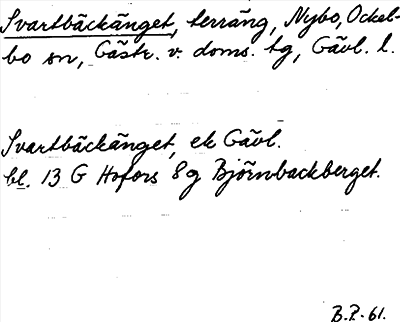 Svartbäckänget, terräng, Nybo, Ockel-
bo sn, Gästr. v. doms. tg, Gävl. l.
Svartbäckänget, ek Gävl.
bl. 13 G Hofors 8g Björnbackberget.
B.P.-61.